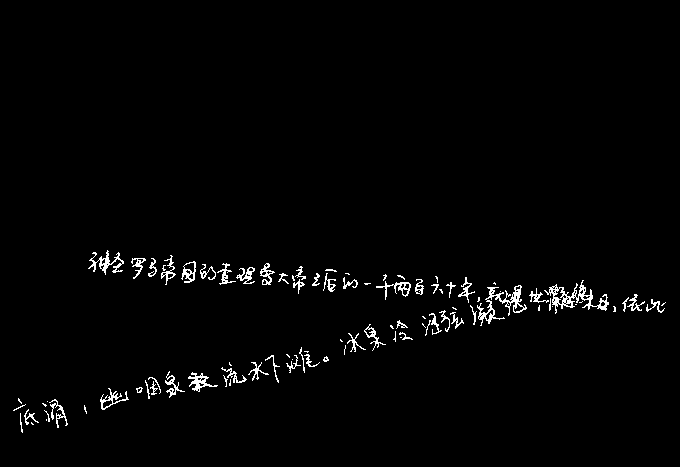 神圣罗马帝国的查理曼大帝之后的一千两百六十年,就是世界末日,依此
底滑,幽咽泉流水下滩。冰泉冷涩弦凝绝